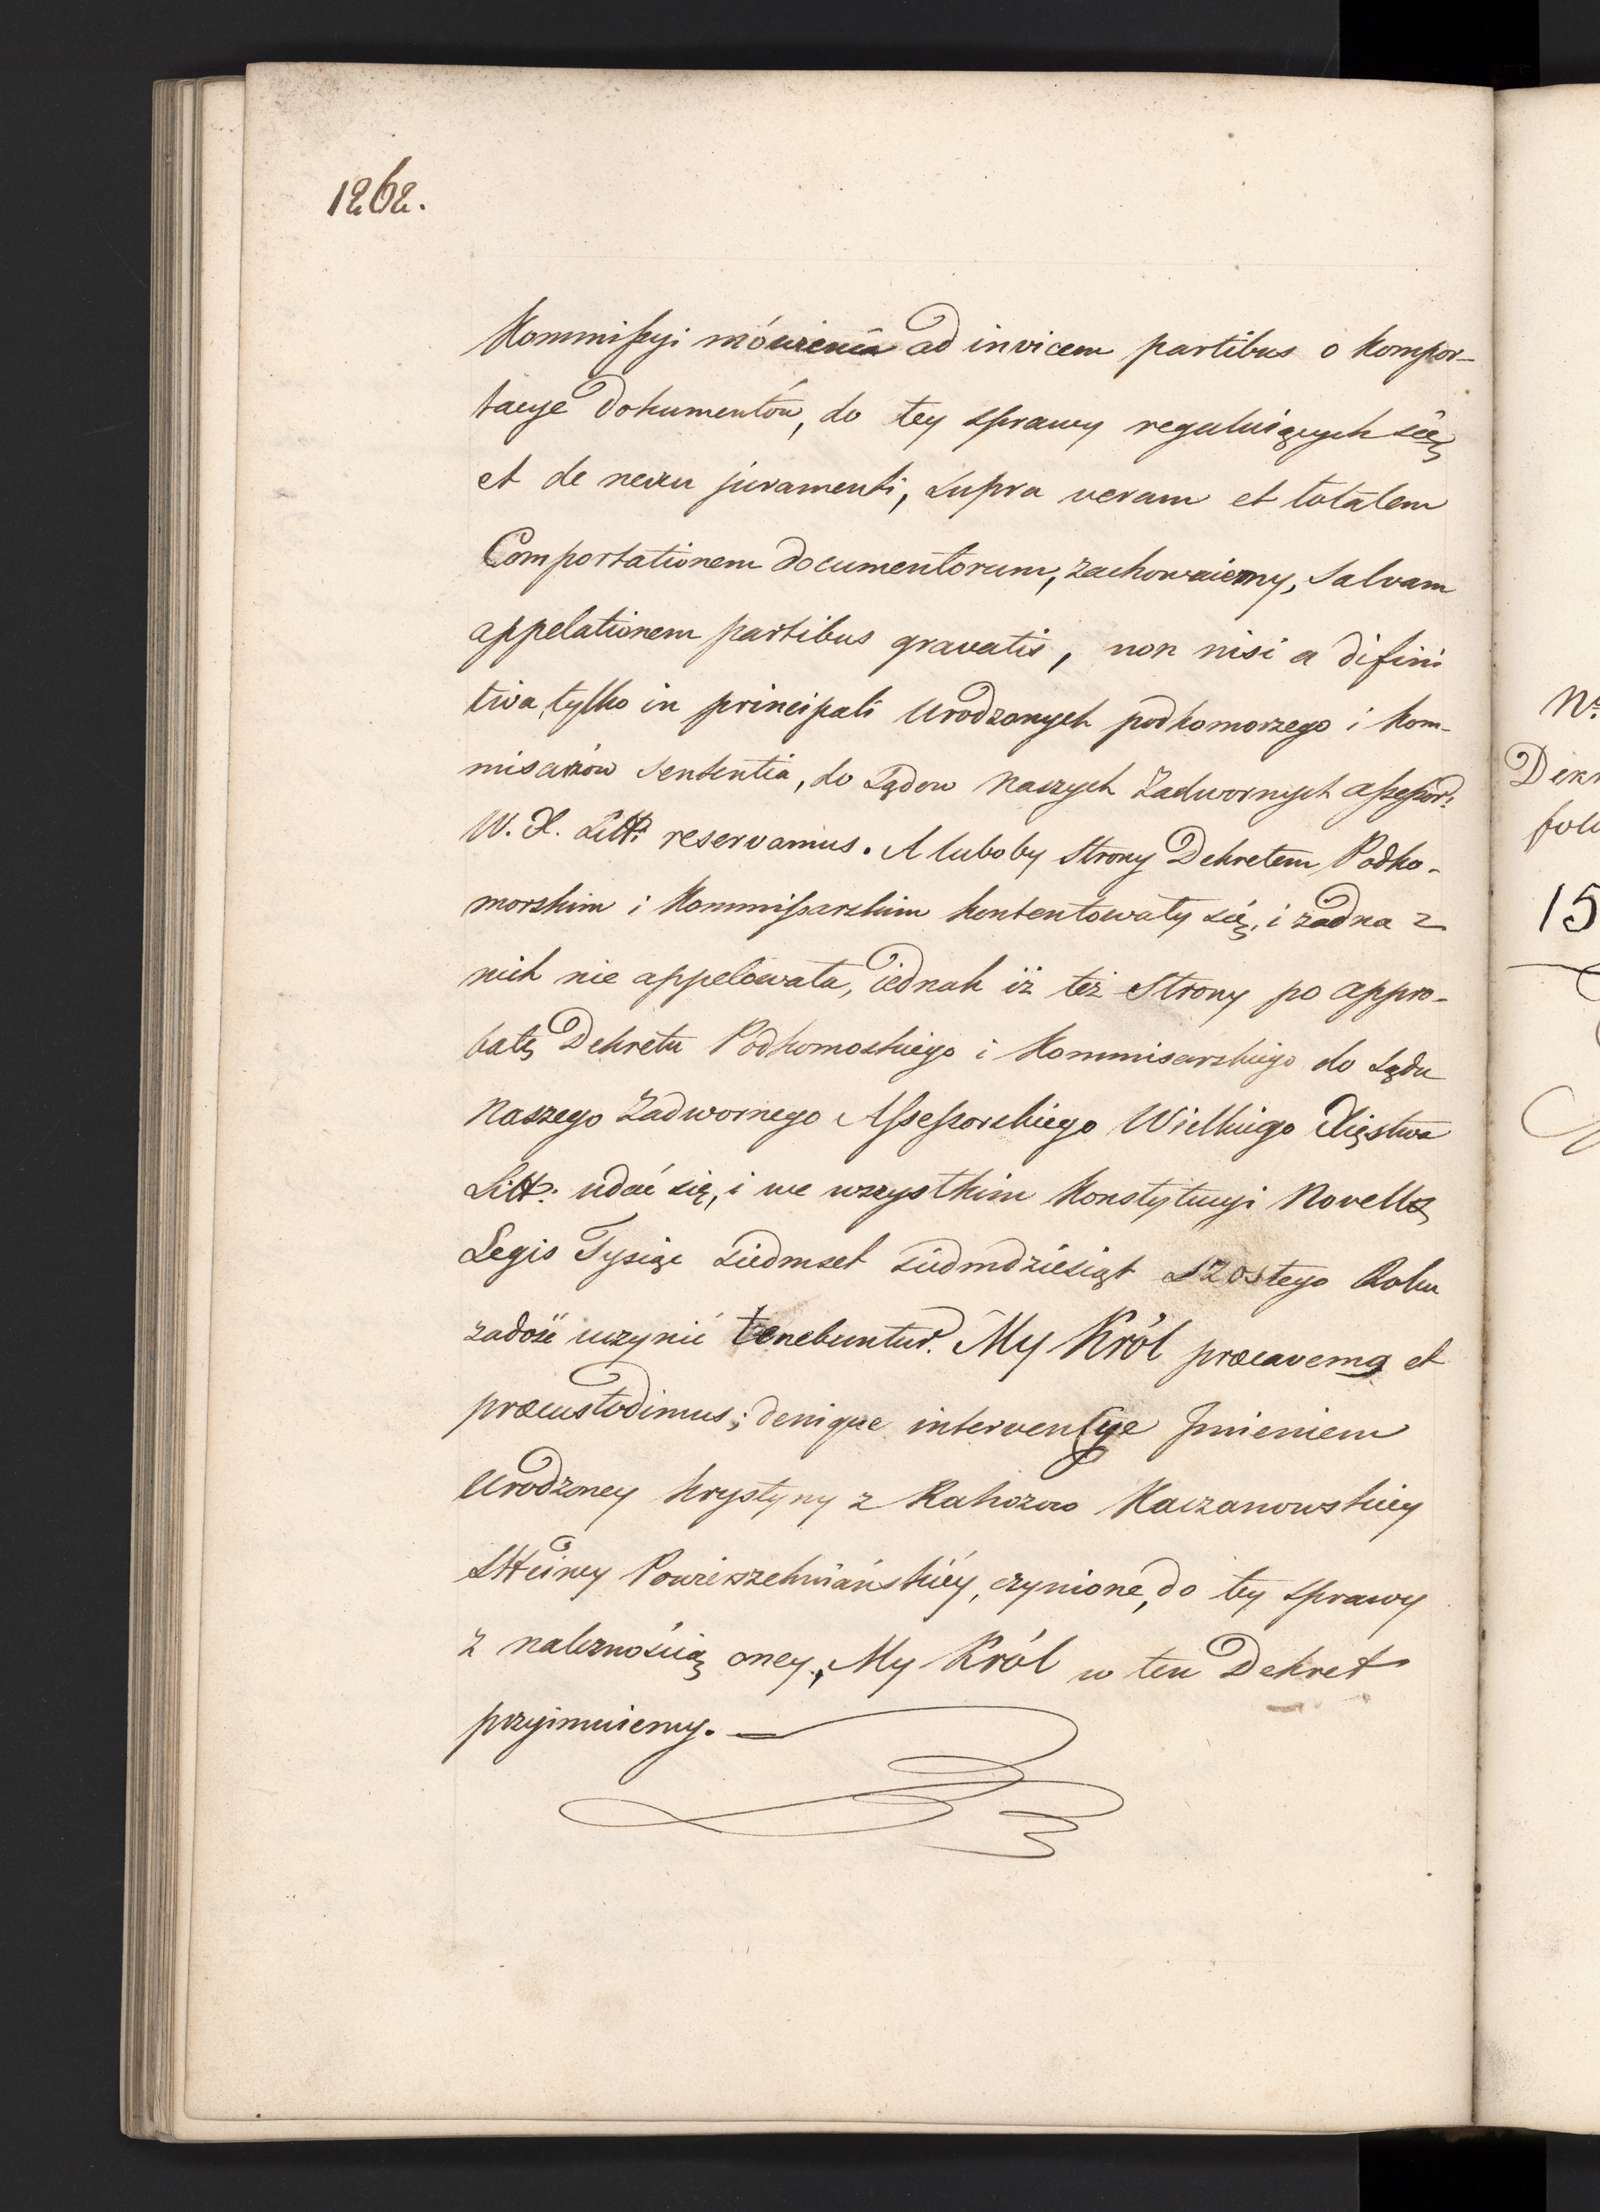 1262.
Kommissyi mówienia ad invicem partibus o kompor-
tacye Dokumentów, do tey sprawy reguluiących się
et de nexu juramenti, supra veram et totalem
Comportationem documentorum, zachowuiemy, salvam
appelationem partibus gravatis, non nisi a difini
tiva, tylko in principali Urodzonych podkomorzego i kom-
misarzów sententia, do Sądow Naszych Zadwornych assessor:
W. X. Litt: reservamus. A luboby Strony Dekretem Podko-
morskim i Kommissarskim kontentowały się, i żadna z
nich nie appelowała, iednak iż też Strony po appro-
batę Dekretu Podkomoskiego i Kommisarskiego do Sądu
Naszego Zadwornego Assessorskiego Wielkiego Xięstwa
Litt: udać się, i we wszystkim Konstytucyi Novella
Legis Tysiąc siedmset siedmdziesiąt szostego Roku
zadość uczynić tenebuntur. My Król præcavemq et
præcustodimus; denique interwencye Jmieniem
Urodzoney Krystyny z Rahozow Kaczanowskiey
Sttciney Powierzchniańskiéy, czynione, do tey sprawy
z należnością oney, My Król w ten Dekret
przyimuiemy.
Nr
Dekr
foli
15